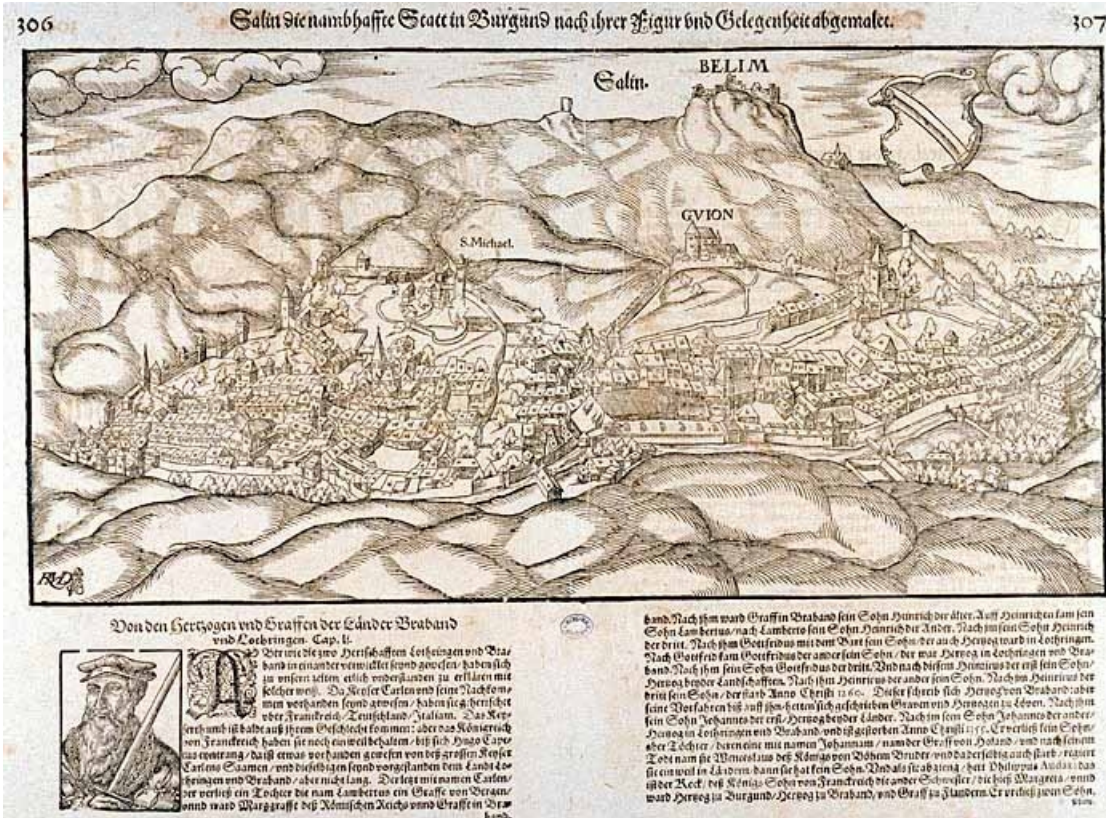 306
Salin die nambhaffte Statt in Burgund nach ihrer Figur vnd Gelegenheit abgemalet.
307
Salin.
BELIM
GVION
S. Michael.
RMD
Von den Hertzogen vnd Graffen der Länder Braband
vnd Lothringen. Cap. li.
Aber wie die zwo Herrschafften Lothringen vnd Bra-
band in einander verwicklet seynd gewesen / haben sich
zu vnsern zeiten etlich vnderstanden zu erklären mit
solcher weiß. Da Keyser Carlen vnd seine Nachkom-
men vorhanden seynd gewesen / haben sie geherrschet
vber Franckreich / Teutschland / Italiam. Das Key-
serthumb ist baldt auß ihrem Geschlecht kommen: aber das Königreich
von Franckreich haben sie noch ein weil behalten / biß sich Hugo Cape-
tus eyntrang / da ist etwas vorhanden gewesen von deß grossen Keyser
Carlens Saamen / vnd dieselbigen seynd vorgestanden dem Landt Lo-
thringen vnd Braband / aber nicht lang. Der letzt mit namen Carlen /
der verließ ein Tochter die nam Lambertus ein Graffe von Bergen /
vnnd ward Marggraffe deß Römischen Reichs vnnd Graffe in Bra-
band.
band. Nach ihm ward Graff in Braband sein Sohn Heinrich der älter. Auff Heinrichen kam sein
Sohn Lambertus / nach Lamberto sein Sohn Heinrich der Ander. Nach jm sein Sohn Heinrich
der dritt. Nach ihm Gottfridus mit dem Bart sein Sohn / der auch Hertzog ward in Lothringen.
Nach Gottfrid kam Gottfridus der ander sein Sohn / der war Hertzog in Lothringen vnd Bra-
band. Nach ihm sein Sohn Gottfridus der dritt. Vnd nach diesem Heinricus der erst sein Sohn /
Hertzog beyder Landschafften. Nach ihm Heinricus der ander sein Sohn. Nach jm Heinricus der
dritt sein Sohn / der starb Anno Christi 1260. Dieser schreib sich Hertzog von Braband: aber
seine Vorfahren biß auff ihn / hetten sich geschrieben Graven vnd Hertzogen zu Löven. Nach ihm
sein Sohn Johannes der erst / Hertzog beyder Länder. Nach jm sein Sohn Johannes der ander /
Hertzog in Lothringen vnd Braband / vnd ist gestorben Anno Christi Er verließ kein Sohn /
aber Töchter / deren eine mit namen Johannam / nam der Graff von Holand / vnd nach seinem
Todt nam sie Wenceslaus deß Königs von Böhem Bruder / vnd da derselbig auch starb / regiert
sie ein weil in Ländern / dann sie hat kein Sohn. Vnd als sie abgieng / hett Philippus Audax / das
ist der Keck / deß Königs Sohn von Franckreich die ander Schwester / die hieß Margreta / vnnd
ward Hertzog zu Burgund / Hertzog zu Braband / vnd Graff zu Flandern. Er verließ zwen Söhn.